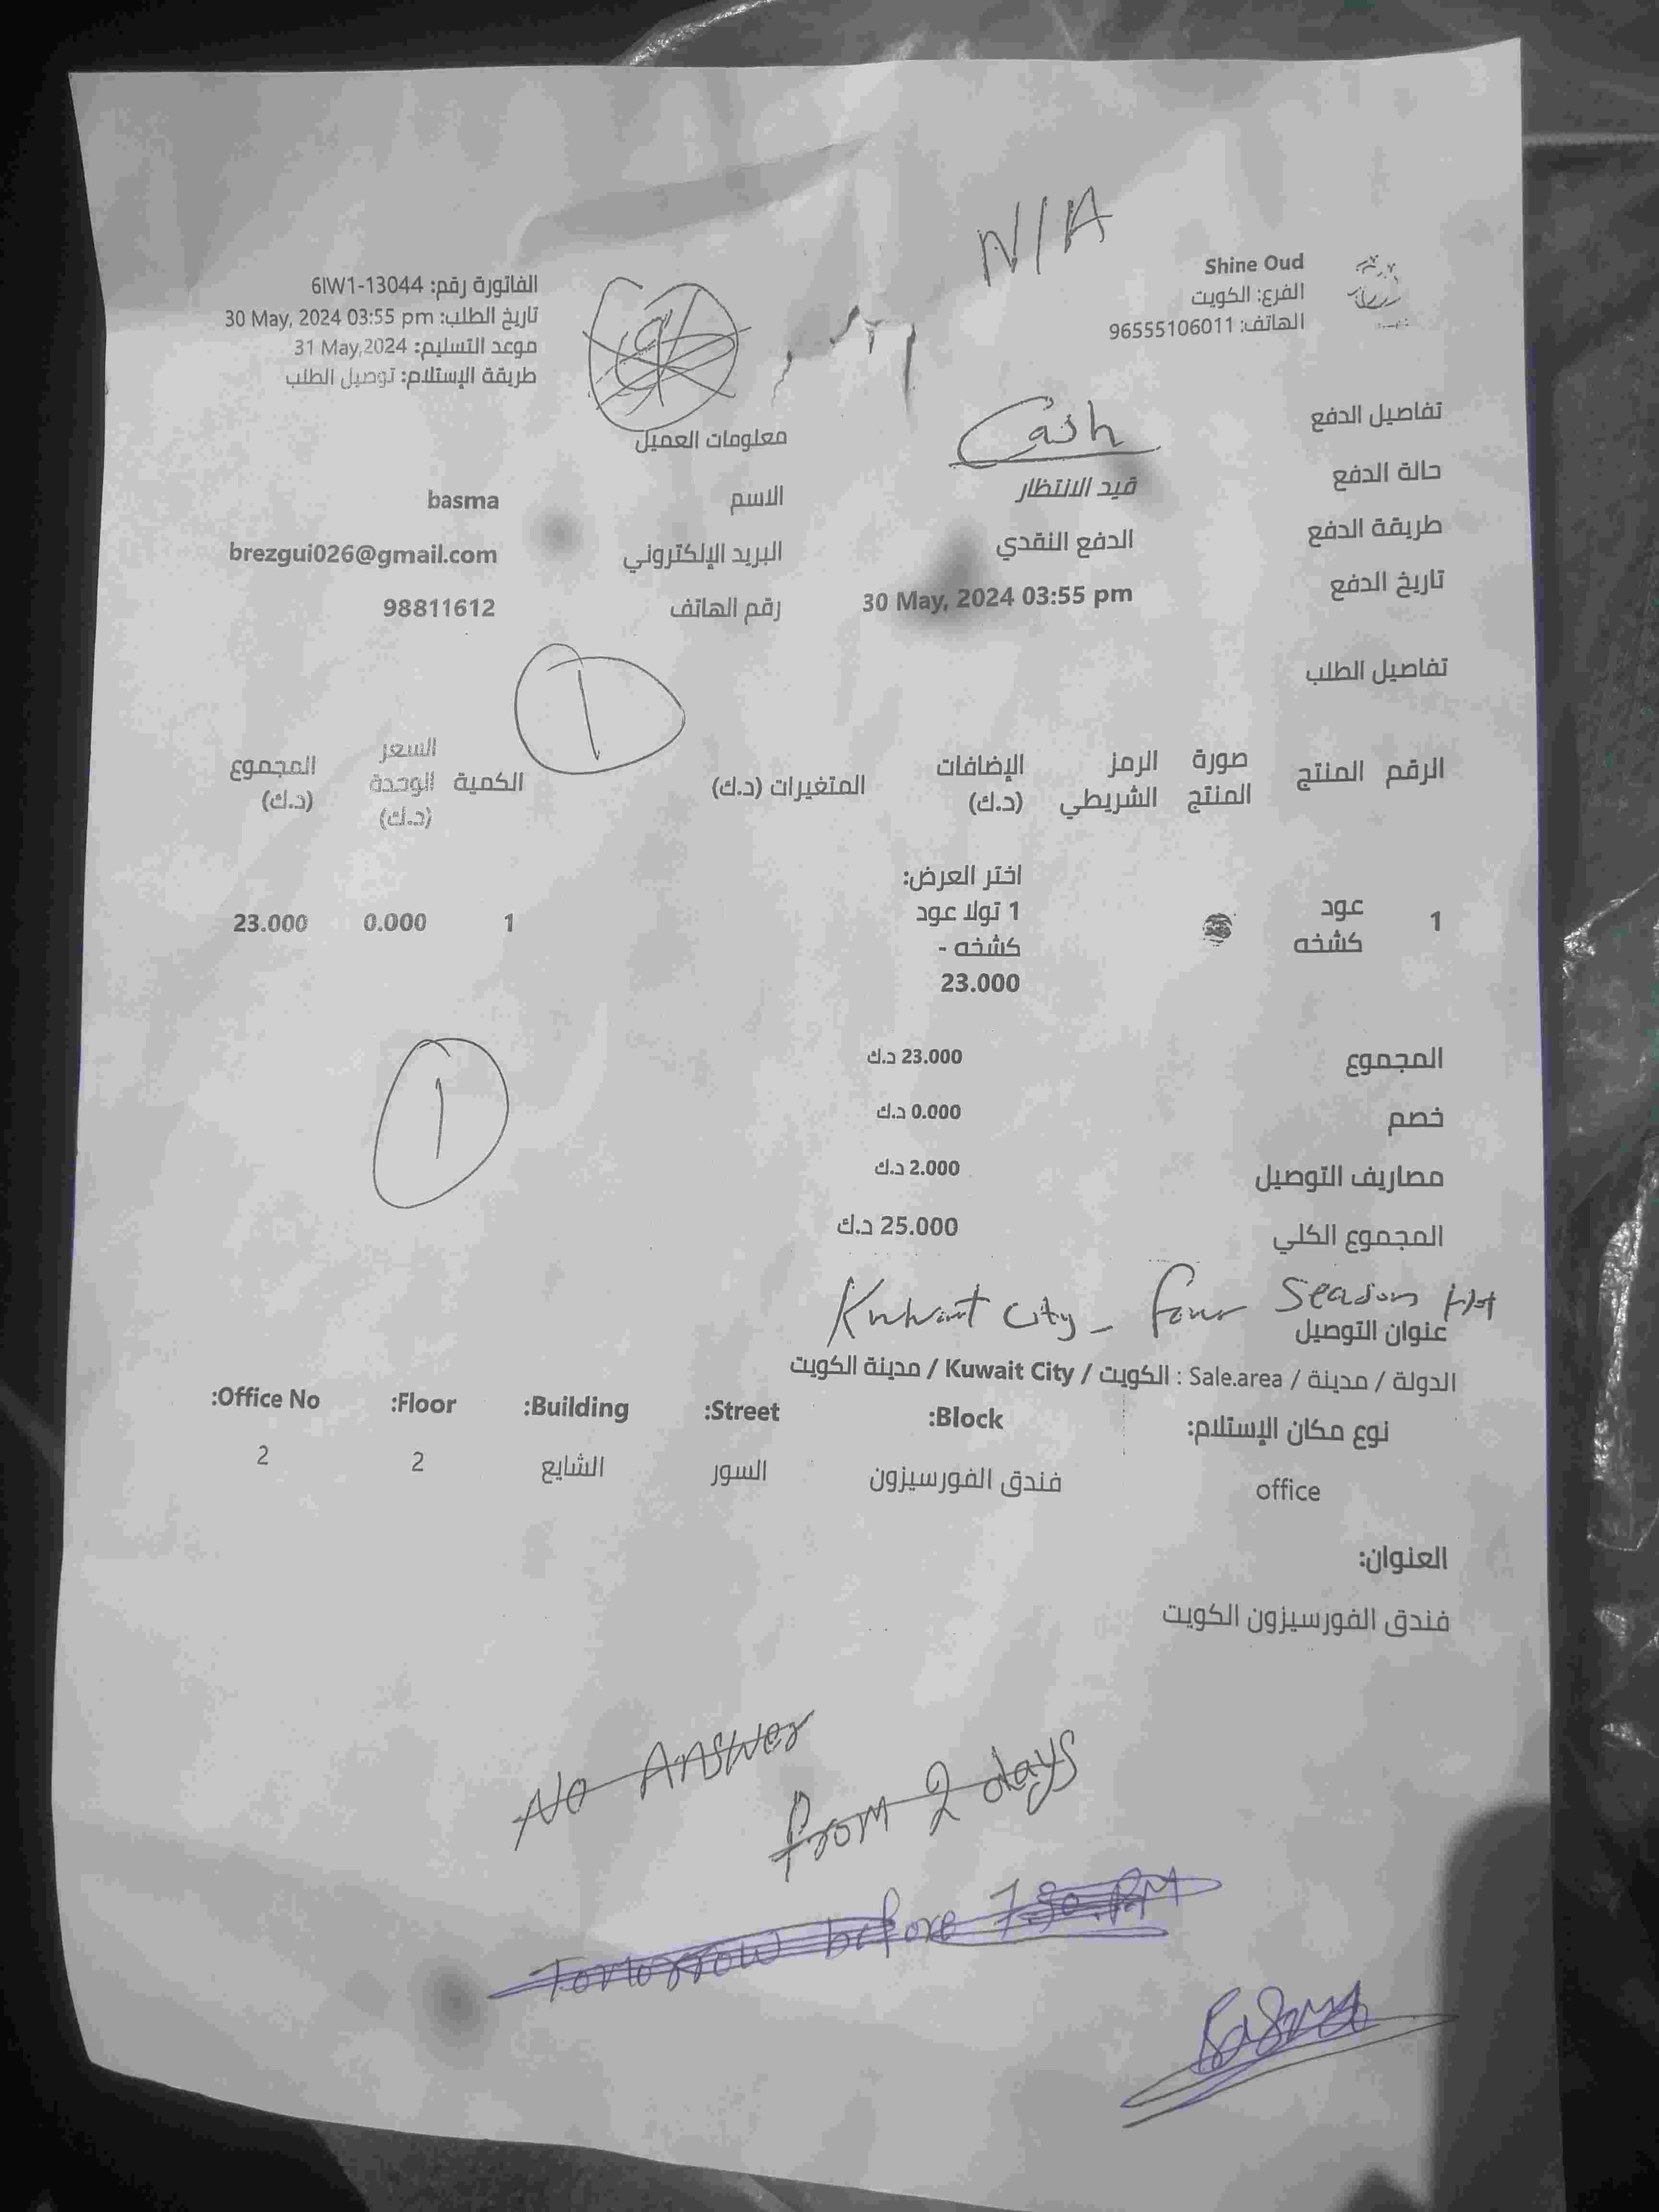 N/A
Shine Oud
الفرع: الكويت
الهاتف: 96555106011
الفاتورة رقم: 6IW1-13044
تاريخ الطلب: 30 May, 2024 03:55 pm
موعد التسليم: 31 May,2024
طريقة الإستلام: توصيل الطلب
تفاصيل الدفع
Cash
حالة الدفع
قيد الانتظار
طريقة الدفع
الدفع النقدي
تاريخ الدفع
30 May, 2024 03:55 pm
معلومات العميل
الاسم
basma
البريد الإلكتروني
brezgui026@gmail.com
رقم الهاتف
98811612
1
تفاصيل الطلب
الرقم المنتج صورة المنتج الرمز الشريطي الإضافات (د.ك) المتغيرات (د.ك) الكمية السعر الوحدة (د.ك) المجموع (د.ك)
1 عود كشخه
اختر العرض:
1 تولا عود
كشخه -
23.000
1 0.000 23.000
المجموع 23.000 د.ك
خصم 0.000 د.ك
مصاريف التوصيل 2.000 د.ك
المجموع الكلي 25.000 د.ك
1
Kuwait City - four Season
عنوان التوصيل
الدولة / مدينة / Sale.area : الكويت / Kuwait City / مدينة الكويت
نوع مكان الإستلام: Block: Street: Building: Floor: Office No:
office فندق الفورسيزون السور الشايع 2 2
العنوان:
فندق الفورسيزون الكويت
No Answer
from 2 days
Tomorrow before 7.30.PM
Basma